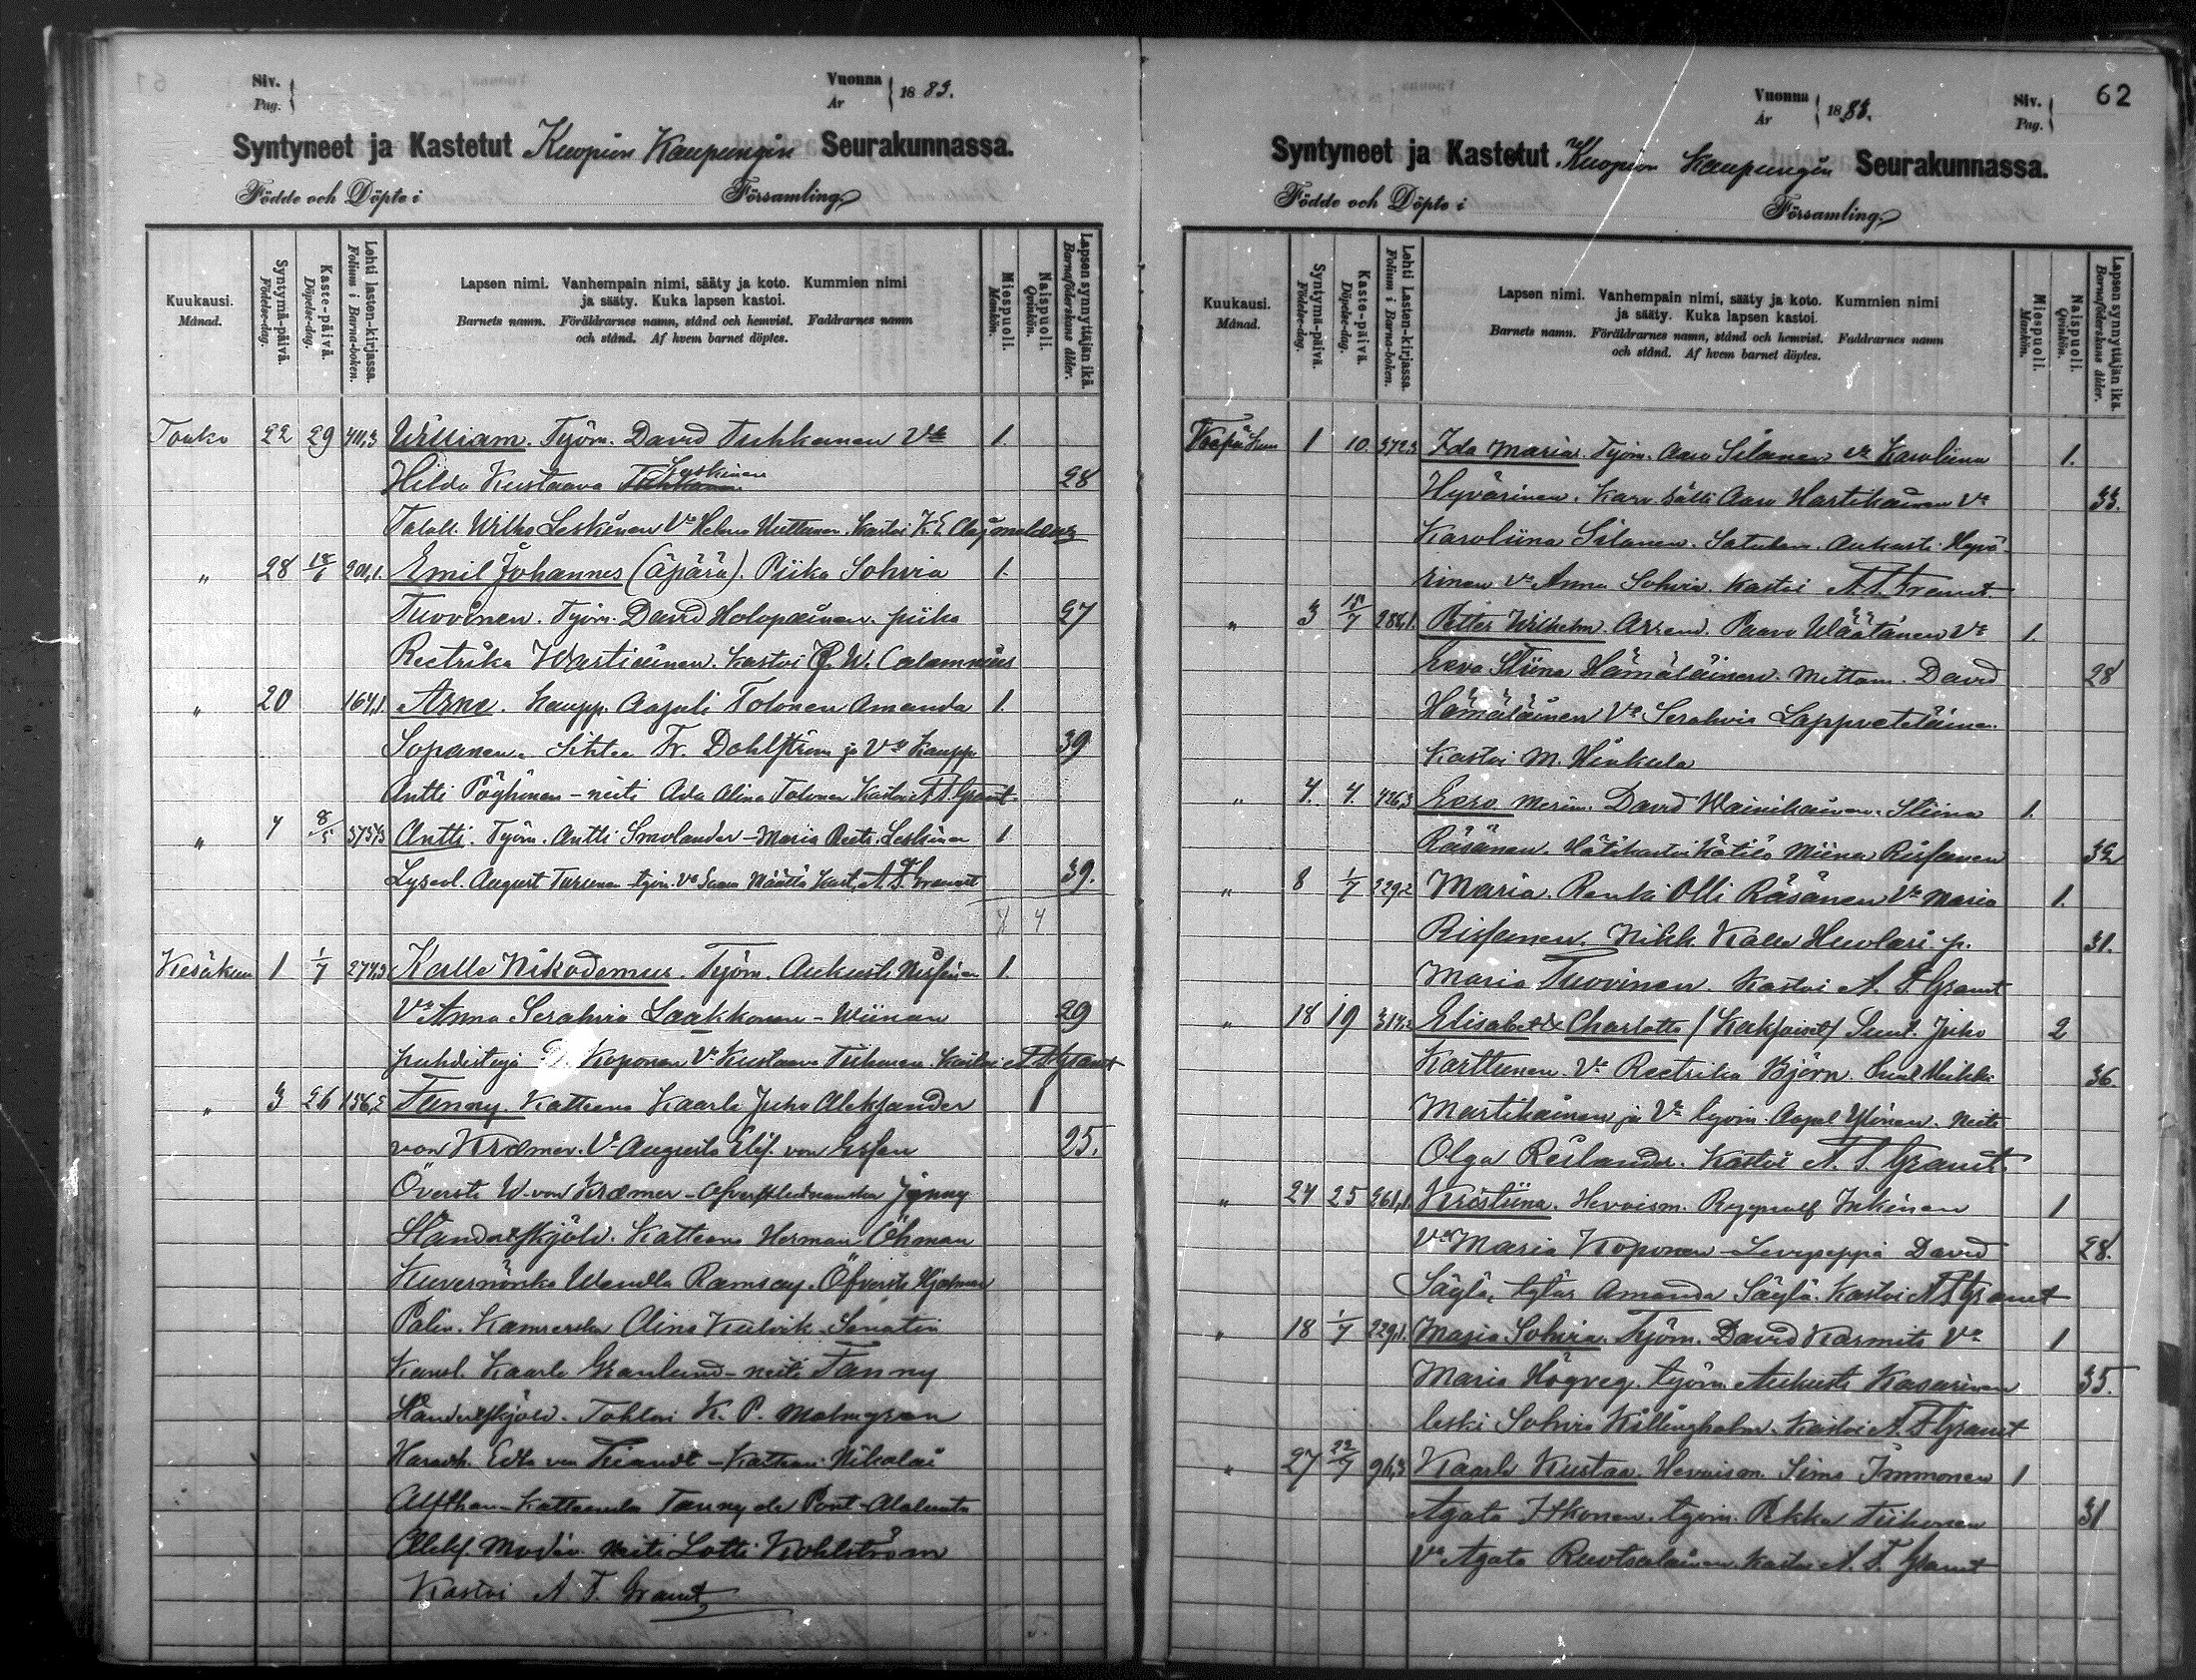 Siv.
Pag.
Vuonna
År
1883.
Syntyneet ja Kastetut Kuopion Kaupungin Seurakunnassa.
Födde och Döpte i Församling.
Kuukausi.
Månad.
Syntymä-päivä.
Födelse-dag.
Kaste-päivä.
Döpelse-dag.
Lehti lasten-kirjassa.
Folium i Barna-boken.
Lapsen nimi. Vanhempain nimi, sääty ja koto. Kummien nimi
ja sääty. Kuka lapsen kastoi.
Barnets namn. Föräldrarnes namn, stånd och hemvist. Faddrarnes namn
och stånd. Af hvem barnet döptes.
Miespuoli.
Mankön.
Naispuoli.
Qvinkön.
Lapsen synnyttäjän ikä.
Barnaföderskans ålder.
Touko 22 29 411,3 William. Työm. David Tuhkanen Vo 1.
Hilda Kustaava Leskinen 28
Taloll. Wilho Leskinen Vo Helena Kastoi K. E.
" 28 18/6 201,1. Emil Johannes (äpärä). Piika Sohvia 1.
Tuovinen. Työm. David Holopainen. piika 27
Reetrika Wartiainen. Kastoi W. Calamnius
" 20 164,1 Arne. Kaupp. Aapeli Tolonen Amanda 1.
Sopanen. Fr. Dahlström ja Vo Kaupp.
39
Antti Pöyhönen - neiti Ada Alina Tolonen. Kastoi A. F. Granit
" 7 8/5 Antti. Työm. Antti Smolander - Maria Reeta Leskinen 1.
August Turunen työm. Vo Saara Määttä Kast. A. F. Granit 39.
4
Kesäkuu 1 1/7 274,3 Kalle Nikodemus. Työm. Aukusti Nissinen 1.
Vo Anna Serahvia Laakkonen - Wiinan 29
puhdistaja Koponen Vo Kustaava Kastoi A. F. Granit
" 3 26 156,2 Fanny. Katteeni Kaarlo Juho Aleksander 1
von Kræmer. Vo Augusta Elis. von Essen 25.
Översti W. von Kræmer - Jenny
Händerskjöld. Katteeni Herman Öhman
Kuvernörska Wendla Ramsay. Öfversti Hjalmar
Palin. Alina Senatin
Kansl. Kaarlo Granlund - neiti Fanny
Händerskjöld. Tohtori K. P. Malmgren
Edla von Fieandt - Katteeni Nikolai
Alfthan - Fanny de Pont -
Aleks. neiti Lotti
Kastoi A. F. Granit
Vuonna
År
1883.
Siv.
Pag.
62
Syntyneet ja Kastetut Kuopion Kaupungin Seurakunnassa.
Födde och Döpte i Församling.
Kuukausi.
Månad.
Syntymä-päivä.
Födelse-dag.
Kaste-päivä.
Döpelse-dag.
Lehti Lasten-kirjassa.
Folium i Barna-boken.
Lapsen nimi. Vanhempain nimi, sääty ja koto. Kummien nimi
ja sääty. Kuka lapsen kastoi.
Barnets namn. Föräldrarnes namn, stånd och hemvist. Faddrarnes namn
och stånd. Af hvem barnet döptes.
Miespuoli.
Mankön.
Naispuoli.
Qvinkön.
Lapsen synnyttäjän ikä.
Barnaföderskans ålder.
Kesäkuu 1 10. 372,3 Ida Maria. Työm. Aaro Silanen Vo Karoliina 1.
Hyvärinen. Aaro Hartikainen Vo 33.
Karoliina Silanen. Aukusti Hyvä-
rinen Vo Anna Sohvia. Kastoi A. F. Granit.
" 3 Petter Wilhelm. Arrend. Paavo Wäätänen Vo 1.
Eeva Stiina Hämäläinen. David 28
Hämäläinen Vo Serahvia Lappveteläinen
Kastoi M. Hinkula
" 4. 4. 426,3 Eero David Wainikainen. Stiina 1.
Räsänen. Hätäkastoi Kätilö Miina Rissanen 32
" 8 1/7 229,2 Maria. Renki Olli Räsänen Vo Maria 1.
Rissanen. Nikk. Kalle p. 31.
Maria Tuovinen. Kastoi A. F. Granit
" 18 19 Elisabet & Charlotta (Kaksoiset) Juho 2
Karttunen. Vo Reetrika Björn. 36.
Martikainen ja Vo työm. Aapel Ylönen. Neiti
Olga Kastoi A. F. Granit.
" 24 25 261,1 Kristiina. Hevoism. Inkinen 1
Vo Maria Koponen - Levyseppä David 28.
Säylä, tytär Amanda Säylä. Kastoi A. F. Granit
" 18 1/7 229,1. Maria Sohvia. Työm. David Karmita Vo 1
Maria työm. Aukusti Kasurinen 35.
leski Sohvia Killingholm. Kastoi A. F. Granit
" 27 22/7 96,3 Kaarlo Kustaa. Hevoism. Simo Immonen 1
Agata Itkonen. työm. Pekka Tiihonen 31
Vo Agata Ruotsalainen Kastoi A. F. Granit